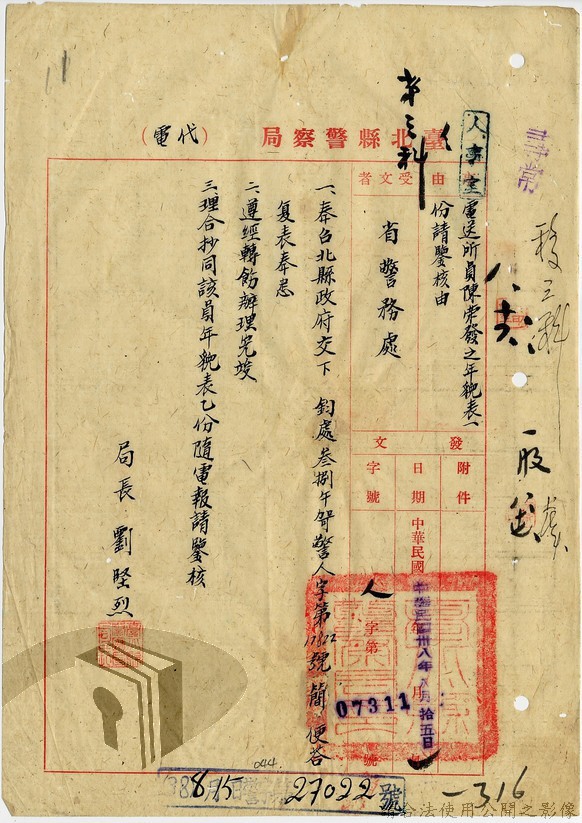 尋常
人事室
第三科
臺北縣警察局（代電）
受文者
由
省警務處
電送所員陳榮發之年貌表一
份請鑒核由
發文
附件
日期
中華民國
中華民國卅八年八月拾五日
字號
人字第
07311
號
一、奉台北縣政府交下　鈞處叁捌午 警人字第17822號簡便答
复表奉悉
二、遵經轉飭辦理完竣
三、理合抄同該員年貌表乙份隨電報請鑒核
局長　劉堅烈
八、十六、
一股
044
38 8 15
27022號
-316
法使用公開之影像